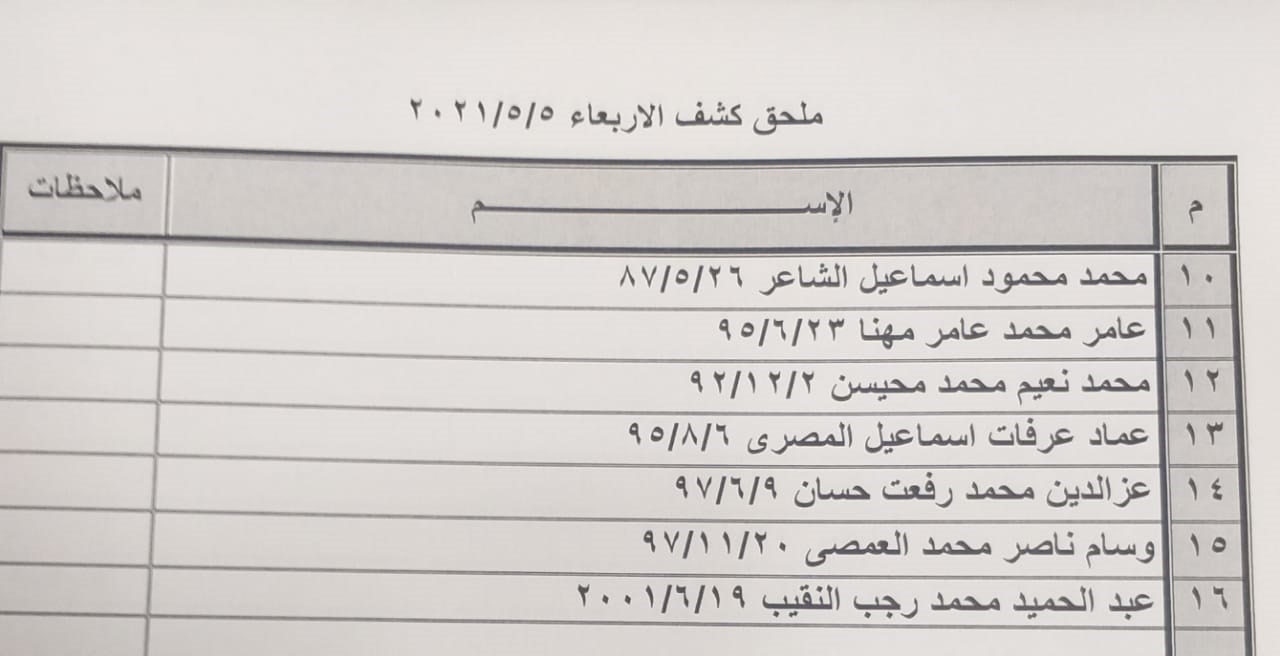 ملحق كشف الاربعاء ٢٠٢١/٥/٥
م الإســـــــــــــــــــم ملاحظات
١٠ محمد محمود اسماعيل الشاعر ٨٧/٥/٢٦
١١ عامر محمد عامر مهنا ٩٥/٦/٢٣
١٢ محمد نعيم محمد محيسن ٩٢/١٢/٢
١٣ عماد عرفات اسماعيل المصرى ٩٥/٨/٦
١٤ عزالدين محمد رفعت حسان ٩٧/٦/٩
١٥ وسام ناصر محمد العمصى ٩٧/١١/٢٠
١٦ عبد الحميد محمد رجب النقيب ٢٠٠١/٦/١٩